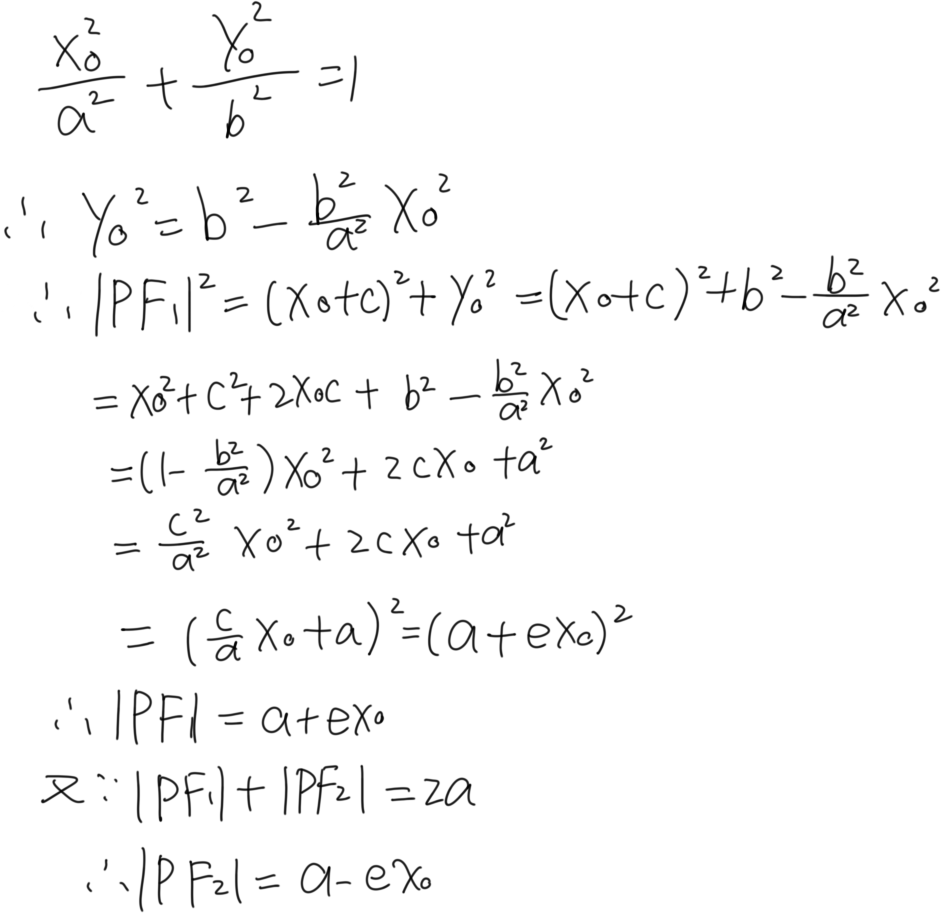 x₀²/a² + y₀²/b² = 1
∴ y₀² = b² - b²/a² x₀²
∴ |PF₁|² = (x₀+c)² + y₀² = (x₀+c)² + b² - b²/a² x₀²
= x₀² + c² + 2x₀c + b² - b²/a² x₀²
= (1 - b²/a²) x₀² + 2cx₀ + a²
= c²/a² x₀² + 2cx₀ + a²
= (c/a x₀ + a)² = (a + ex₀)²
∴ |PF₁| = a + ex₀
又∵ |PF₁| + |PF₂| = 2a
∴ |PF₂| = a - ex₀